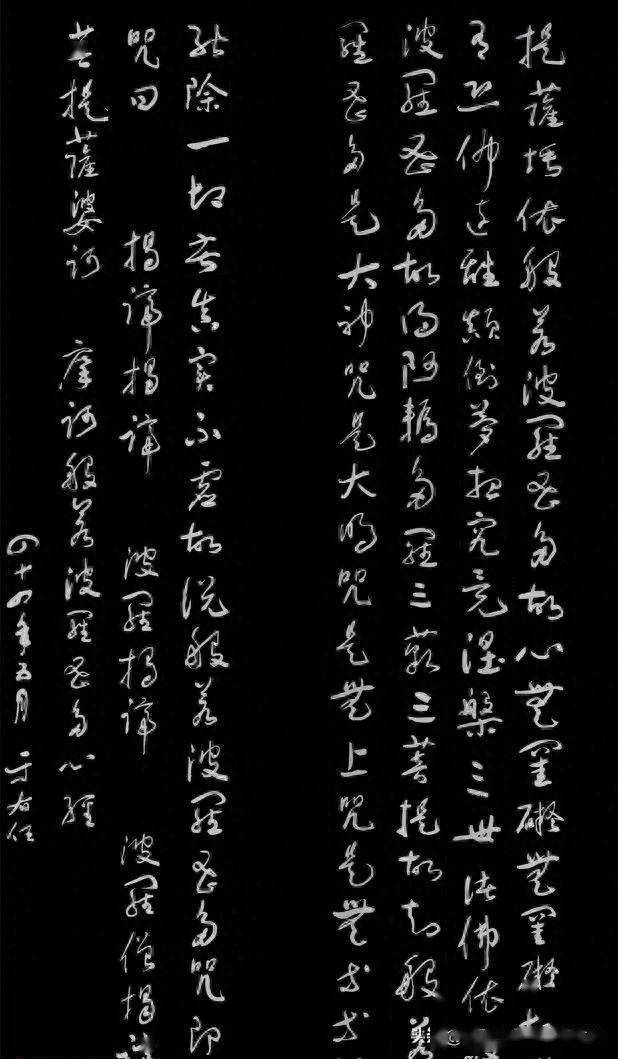 提薩埵依般若波羅蜜多故心無罣礙無罣礙故
有恐怖遠離顛倒夢想究竟涅槃三世諸佛依
波羅蜜多故得阿耨多羅三藐三菩提故知般若
羅蜜多是大神咒是大明咒是無上咒是無等等
能除一切苦真實不虛故說般若波羅蜜多咒即
咒曰 揭諦揭諦 波羅揭諦 波羅僧揭諦
菩提薩婆訶 摩訶般若波羅蜜多心經
四十四年五月 于右任